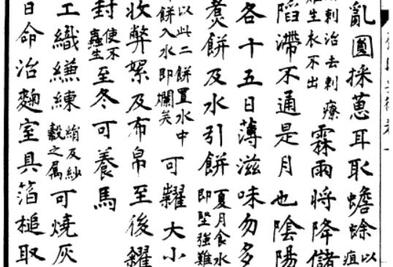 亂圓採蔥耳取蟾蜍以疽
刺治去刺療生衣不出霖雨將降儲
陷滯不通是月也陰陽
各十五日薄滋味勿多
煑餅及水引餅夏月食水即堅強難
以此二餅置水中餅入水即爛矣可糶大小
收弊絮及布帛至後糴
封使不蟲生至冬可養馬
工織縑練綃及紗縠之屬可燒灰
日命治麴室具箔槌取